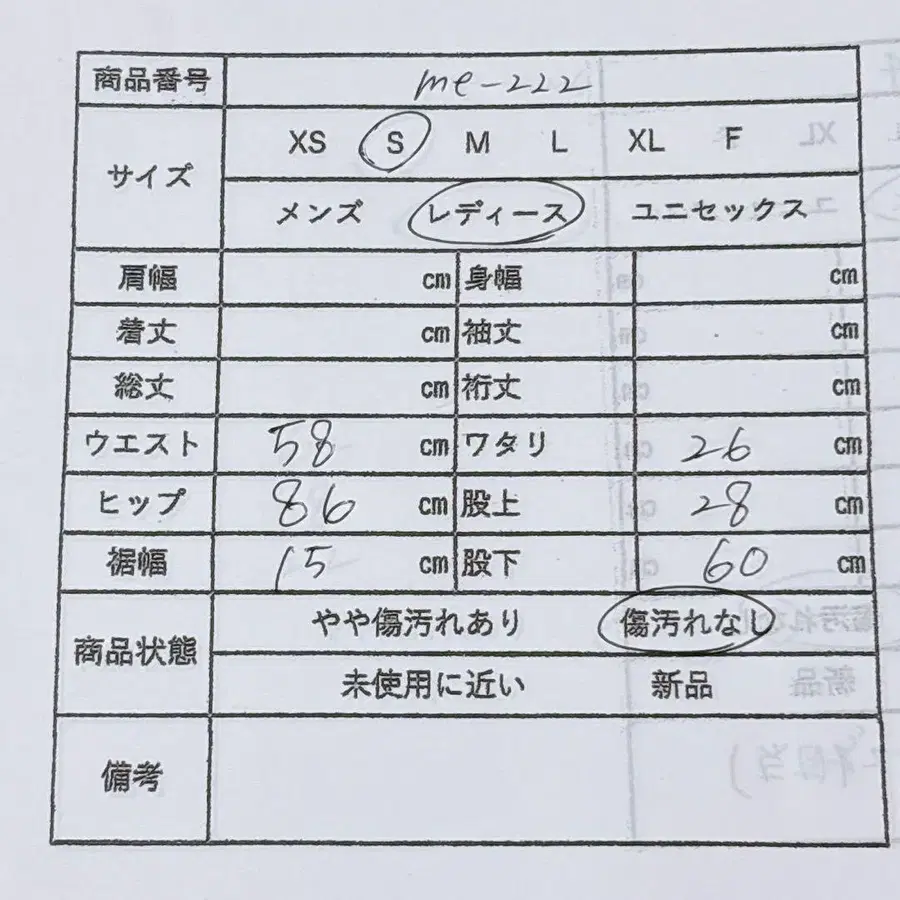 商品番号 me-222
サイズ XS S M L XL F
メンズ レディース ユニセックス
肩幅 cm 身幅 cm
着丈 cm 袖丈 cm
総丈 cm 裄丈 cm
ウエスト 58 cm ワタリ 26 cm
ヒップ 86 cm 股上 28 cm
裾幅 15 cm 股下 60 cm
商品状態 やや傷汚れあり 傷汚れなし
未使用に近い 新品
備考